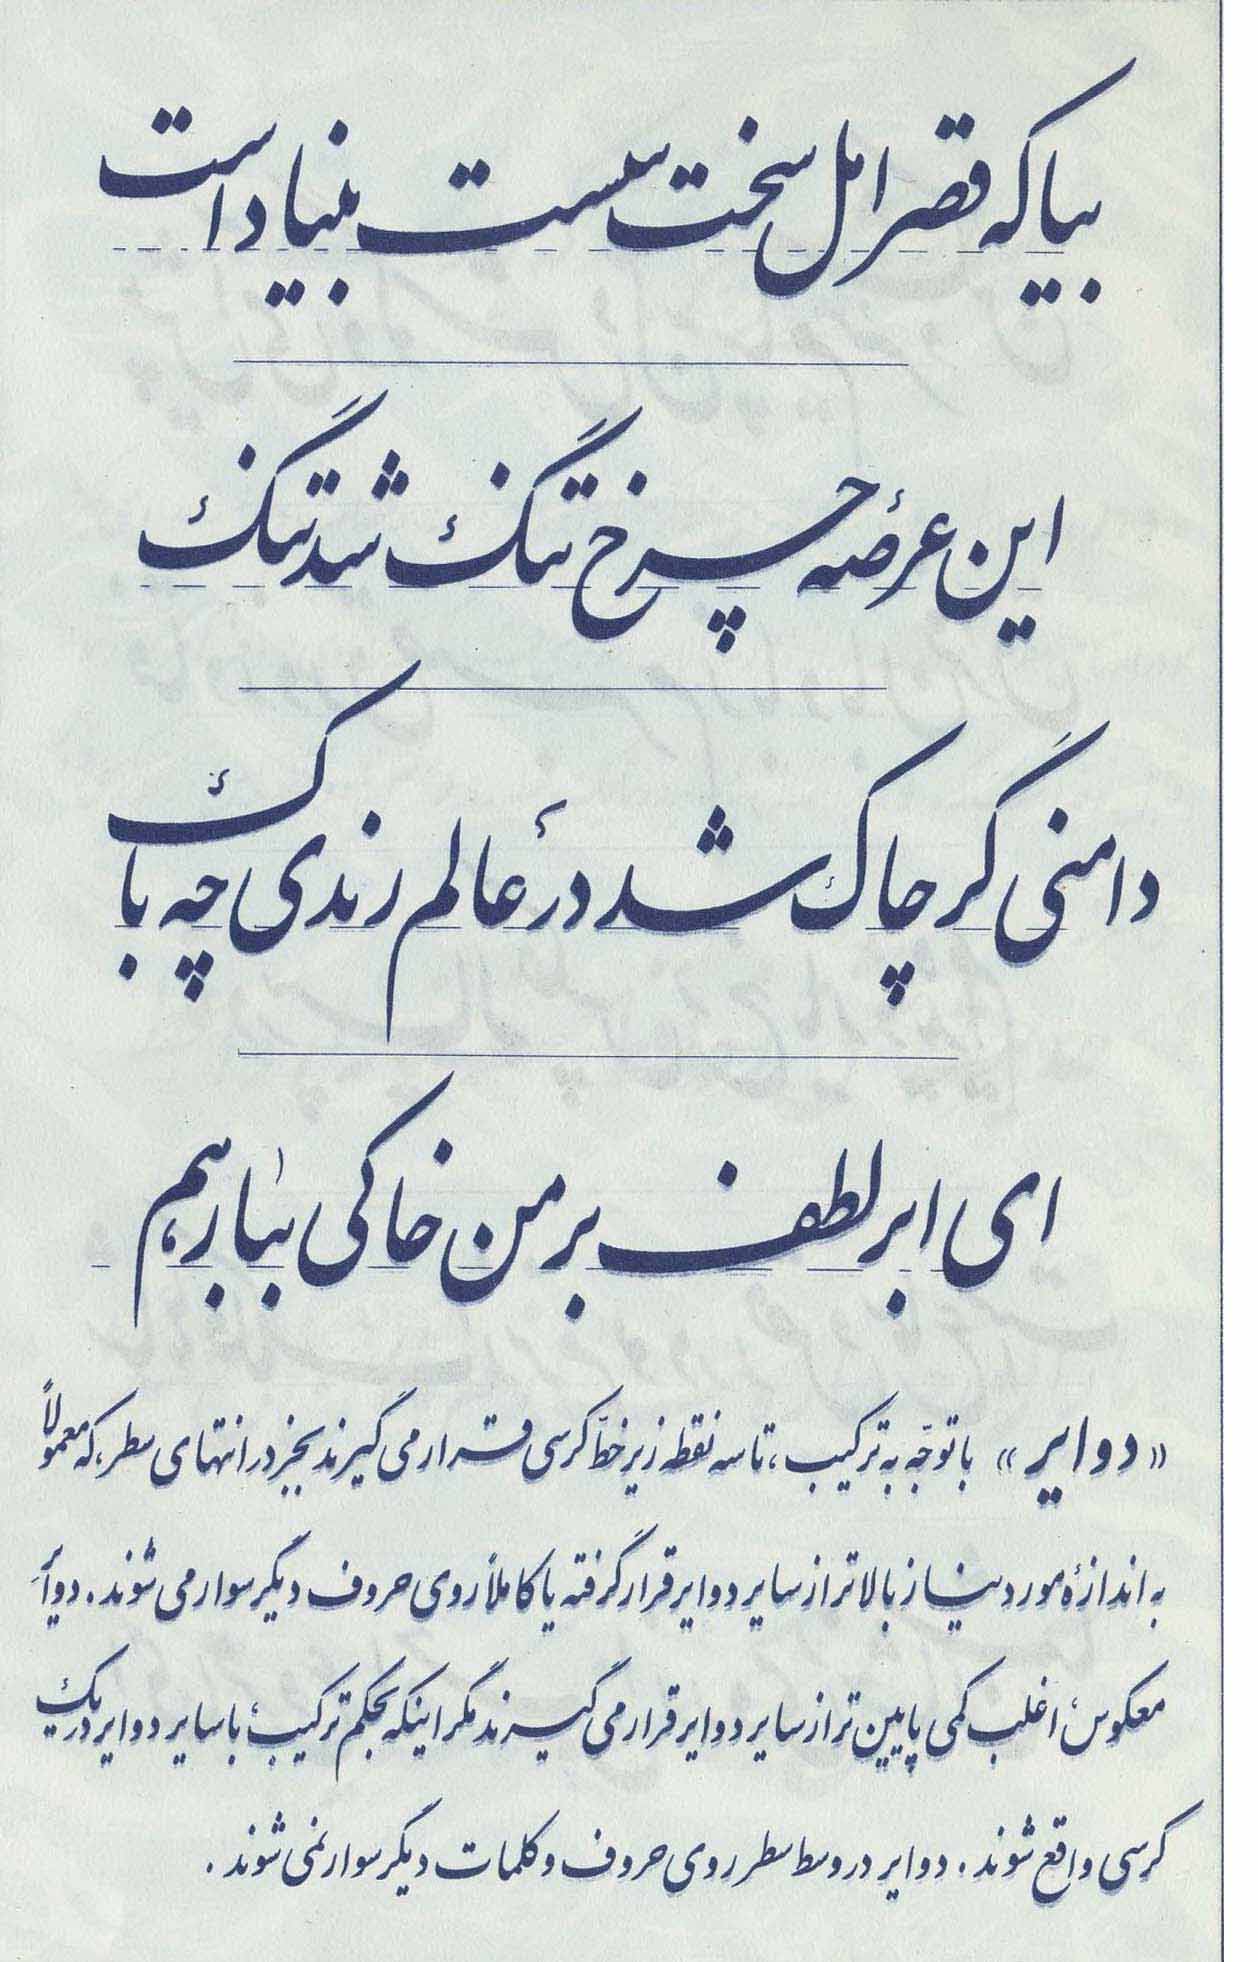 بیا که قصر امل سخت سست بنیاد است
این عرصهٔ چرخ تنگ شد تنگ
دامنی گر چاک شد در عالم رندی چه باک
ای ابر لطف بر من خاکی ببار هم
«دوایر» با توجّه به ترکیب، تا سه نقطه زیر خطّ کرسی قرار می گیرند بجز در انتهای سطر، که معمولاً
به اندازهٔ مورد نیاز بالاتر از سایر دوایر قرار گرفته یا کاملاً روی حروف دیگر سوار می شوند. دوائر
معکوس، اغلب کمی پایین تر از سایر دوایر قرار می گیرند مگر اینکه بحکم ترکیب، با سایر دوایر در یک
کرسی واقع شوند. دوایر در وسط سطر روی حروف و کلمات دیگر سوار نمی شوند.